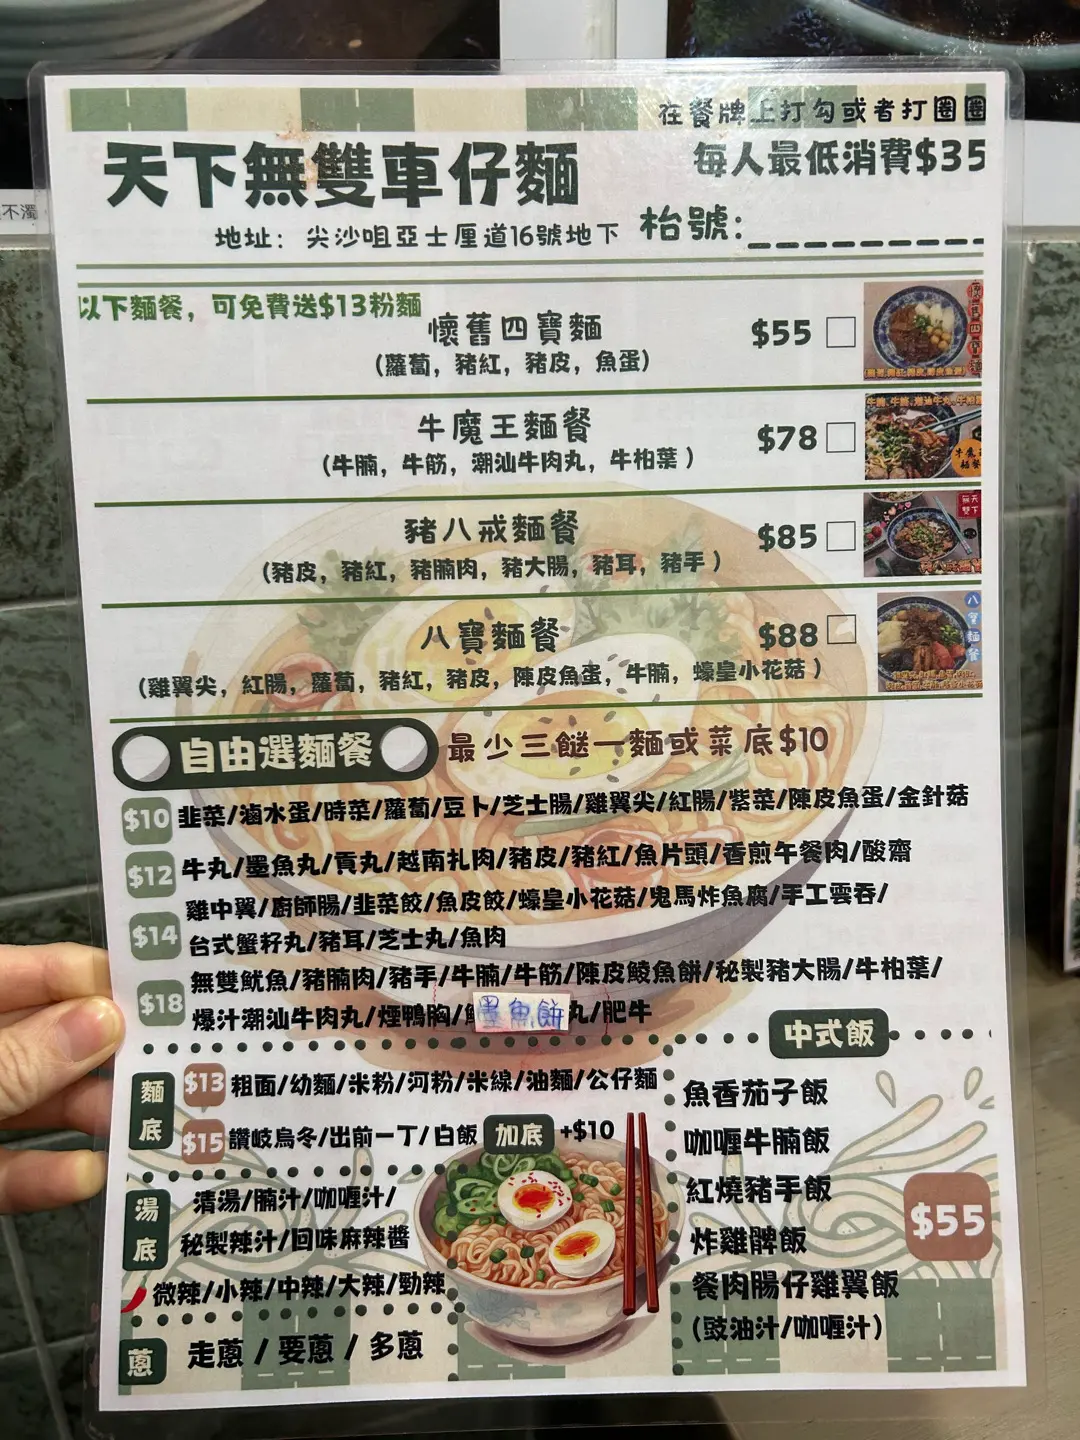 在餐牌上打勾或者打圈圈
天下無雙車仔麵
每人最低消費$35
地址：尖沙咀亞士厘道16號地下
枱號：
不濁
以下麵餐，可免費送$13粉麵
懷舊四寶麵
$55
(蘿蔔，豬紅，豬皮，魚蛋)
牛魔王麵餐
$78
(牛腩，牛筋，潮汕牛肉丸，牛柏葉)
豬八戒麵餐
$85
(豬皮，豬紅，豬腩肉，豬大腸，豬耳，豬手)
八寶麵餐
$88
(雞翼尖，紅腸，蘿蔔，豬紅，豬皮，陳皮魚蛋，牛腩，蠔皇小花菇)
自由選麵餐
最少三餸一麵或菜底$10
$10 韭菜/滷水蛋/時菜/蘿蔔/豆卜/芝士腸/雞翼尖/紅腸/紫菜/陳皮魚蛋/金針菇
$12 牛丸/墨魚丸/貢丸/越南扎肉/豬皮/豬紅/魚片頭/香煎午餐肉/酸齋
$14 雞中翼/廚師腸/韭菜餃/魚皮餃/蠔皇小花菇/鬼馬炸魚腐/手工雲吞/
台式蟹籽丸/豬耳/芝士丸/魚肉
$18 無雙魷魚/豬腩肉/豬手/牛腩/牛筋/陳皮鯪魚餅/秘製豬大腸/牛柏葉/
爆汁潮汕牛肉丸/煙鴨胸/墨魚餅丸/肥牛
麵底
$13 粗面/幼麵/米粉/河粉/米線/油麵/公仔麵
$15 讚岐烏冬/出前一丁/白飯 加底 +$10
湯底
清湯/腩汁/咖喱汁/
秘製辣汁/回味麻辣醬
微辣/小辣/中辣/大辣/勁辣
蔥 走蔥 / 要蔥 / 多蔥
中式飯
魚香茄子飯
咖喱牛腩飯
紅燒豬手飯
炸雞髀飯
餐肉腸仔雞翼飯
(豉油汁/咖喱汁)
$55